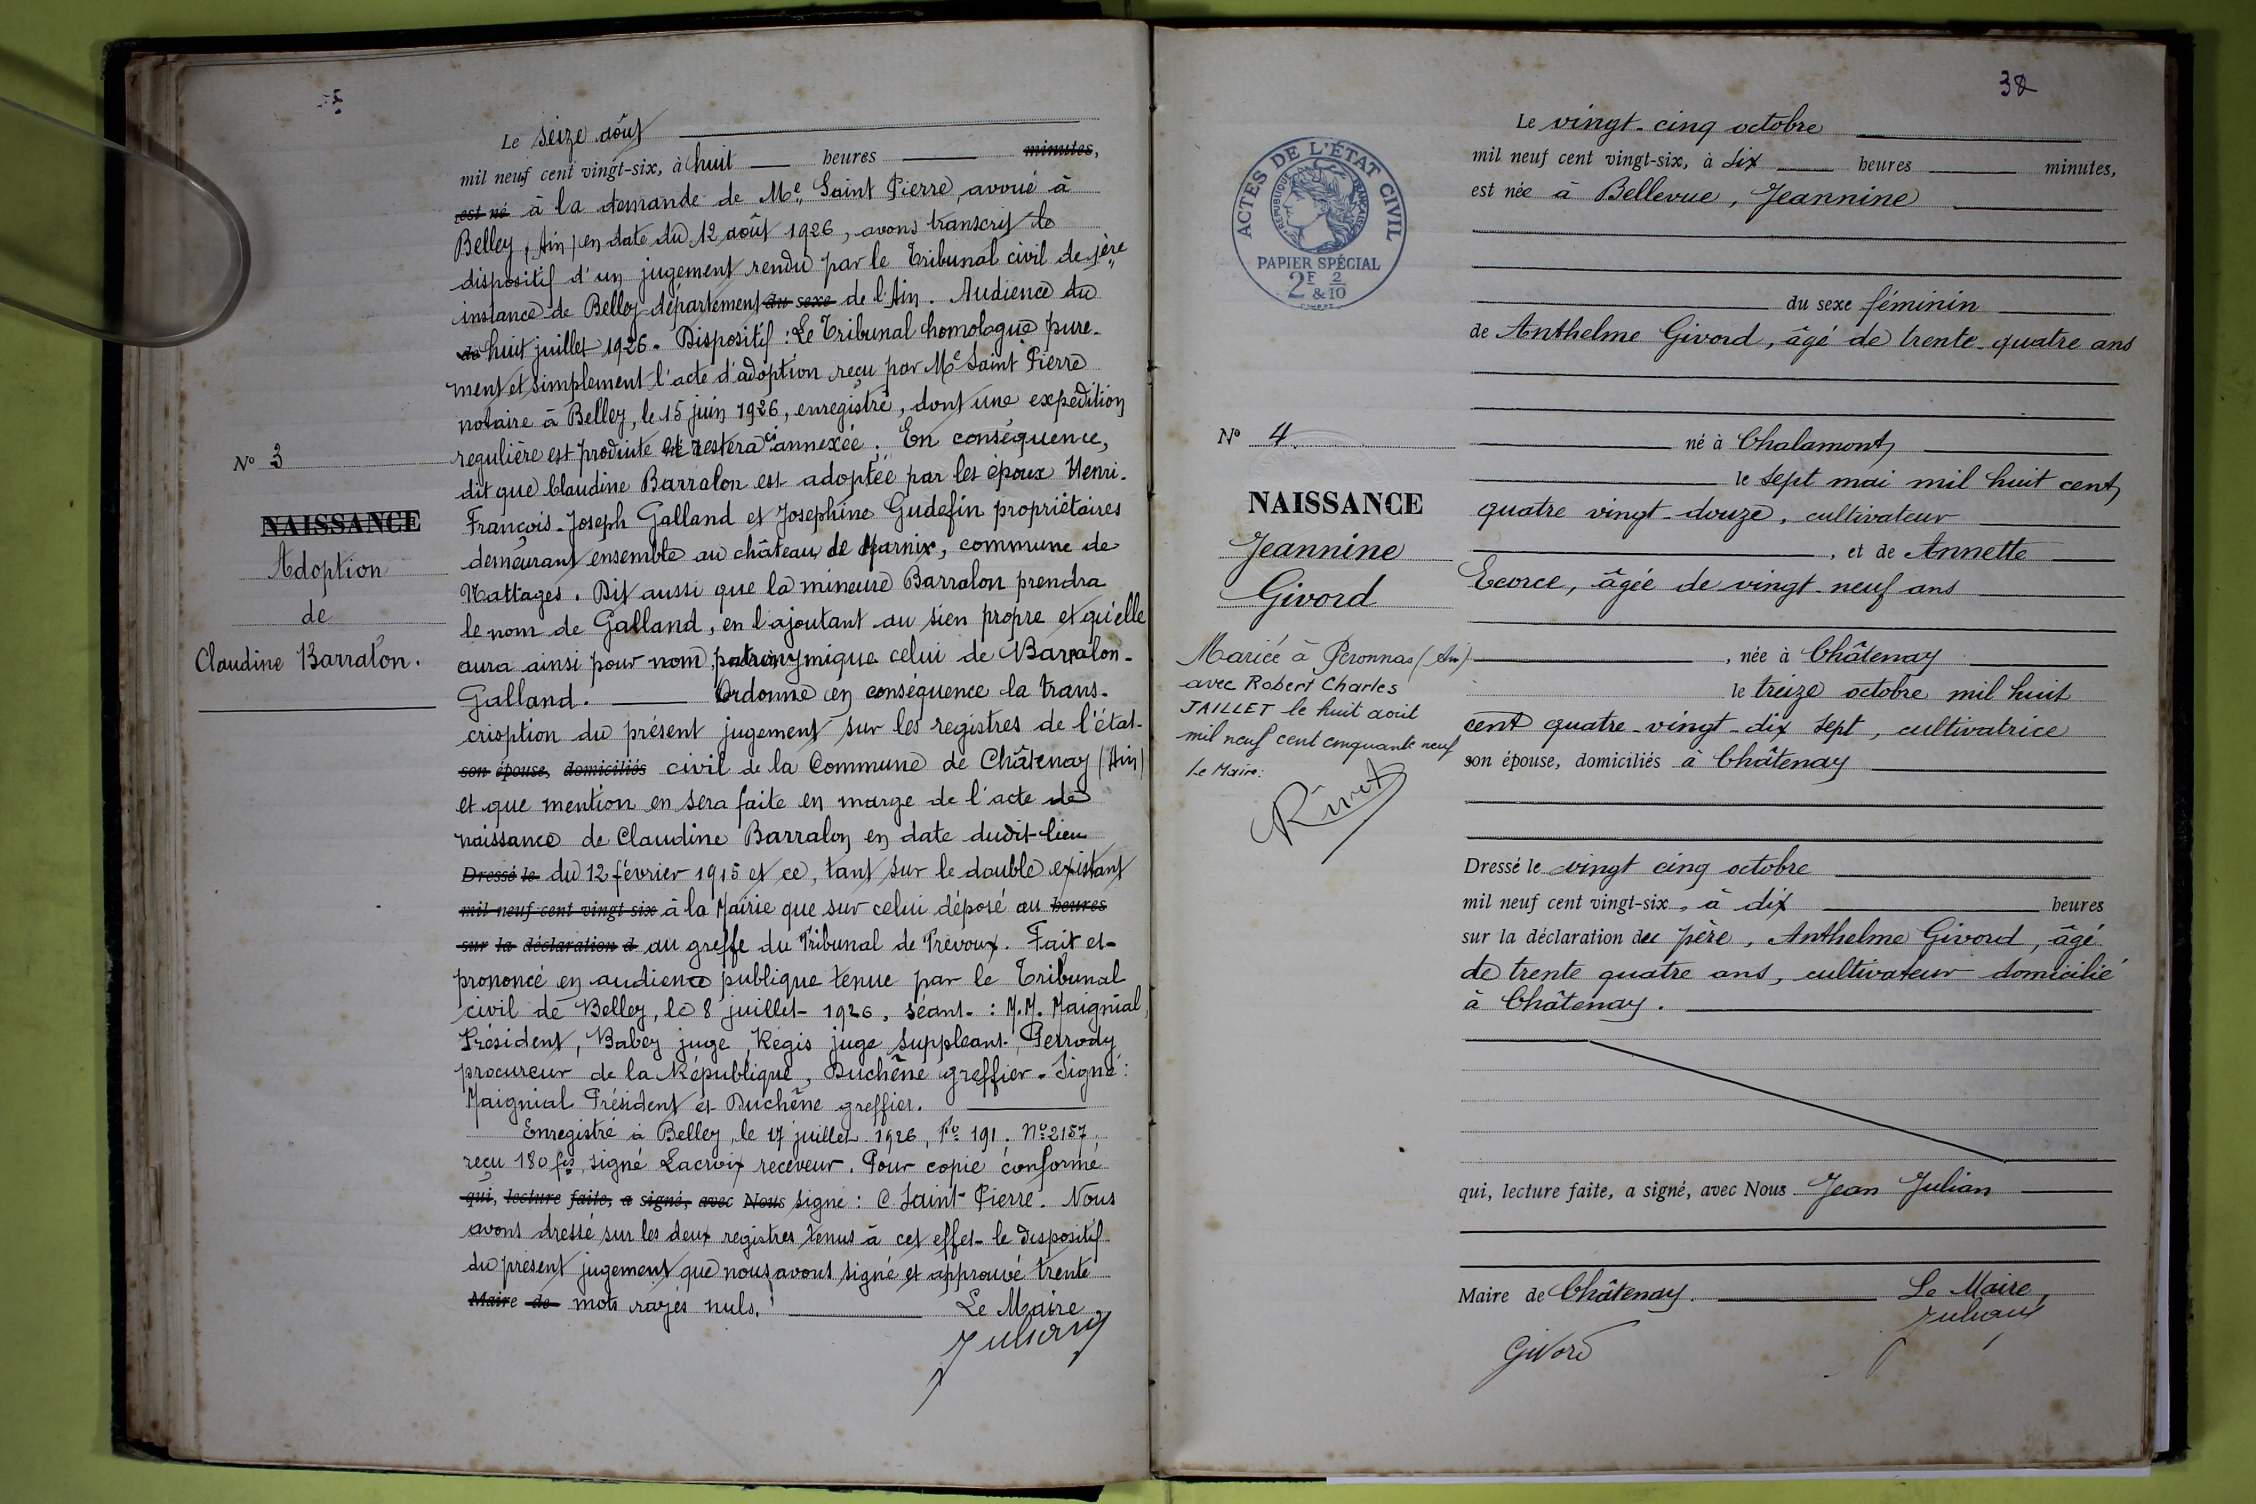 Le seize août
mil neuf cent vingt-six, à huit heures minutes,
est né à la demande de Me Saint Pierre, avoué à
Belley, Ain, en date du 12 août 1926, avons transcrit le
dispositif d'un jugement rendu par le Tribunal civil de 1ère
instance de Belley département du sexe de l'Ain. Audience du
de huit juillet 1926. Dispositif : Le Tribunal homologue pure-
ment et simplement l'acte d'adoption reçu par Me Saint Pierre
notaire à Belley, le 15 juin 1926, enregistré, dont une expédition
regulière est produite et restera ci annexée. En conséquence,
dit que Claudine Barralon est adoptée par les époux Henri-
François-Joseph Galland et Josephine Gudefin propriétaires
demeurant ensemble au château de Marnix, commune de
Nattages. Dit aussi que la mineure Barralon prendra
le nom de Galland, en l'ajoutant au sien propre et qu'elle
aura ainsi pour nom patronymique celui de Barralon-
Galland. Ordonne en conséquence la trans-
cription du présent jugement sur les registres de l'état-
son épouse, domiciliés civil de la Commune de Châtenay (Ain)
et que mention en sera faite en marge de l'acte de
naissance de Claudine Barralon en date dudit-lieu
Dressé le du 12 février 1915 et ce, tant sur le double existant
mil neuf cent vingt-six à la Mairie que sur celui déposé au heures
sur la déclaration d au greffe du Tribunal de Trévoux. Fait et
prononcé en audience publique tenue par le Tribunal
civil de Belley, le 8 juillet 1926, séant : M.M. Maignial,
Président, Babey juge, Régis juge suppleant, Perrody
procureur de la République, Duchêne greffier. Signé :
Maignial Président et Duchêne greffier.
Enregistré à Belley, le 17 juillet 1926, fo 191. No 2157,
reçu 180 frs, signé Lacroix receveur. Pour copie conforme
qui, lecture faite, a signé, avec Nous signé : C. Saint-Pierre. Nous
avons dressé sur les deux registres tenus à cet effet le dispositif
du présent jugement que nous avons signé et approuvé trente
Maire de mots rayés nuls. Le Maire
Julian
No 3
NAISSANCE
Adoption
de
Claudine Barralon.
38
Le vingt-cinq octobre
mil neuf cent vingt-six, à dix heures minutes,
est née à Bellevue, Jeannine
du sexe féminin
de Anthelme Givord, âgé de trente-quatre ans
né à Chalamont
le sept mai mil huit cent
quatre vingt-douze, cultivateur
, et de Annette
Ecorce, âgée de vingt-neuf ans
, née à Châtenay
le treize octobre mil huit
cent quatre-vingt-dix sept, cultivatrice
son épouse, domiciliés à Châtenay
Dressé le vingt cinq octobre
mil neuf cent vingt-six, à dix heures
sur la déclaration du père, Anthelme Givord, âgé
de trente quatre ans, cultivateur domicilié
à Châtenay.
qui, lecture faite, a signé, avec Nous Jean Julian
Maire de Châtenay. Le Maire,
Givord Julian
ACTES DE L'ÉTAT CIVIL
RÉPUBLIQUE FRANÇAISE
PAPIER SPÉCIAL
2F & 2/10
No 4.
NAISSANCE
Jeannine
Givord
Mariée à Péronnas (Ain)
avec Robert Charles
JAILLET le huit août
mil neuf cent cinquante neuf
Le Maire: